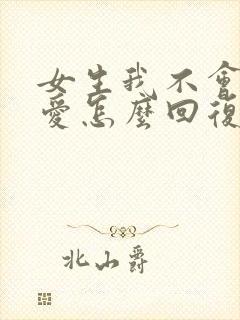 女生我不會
愛怎麼回復
北山爵